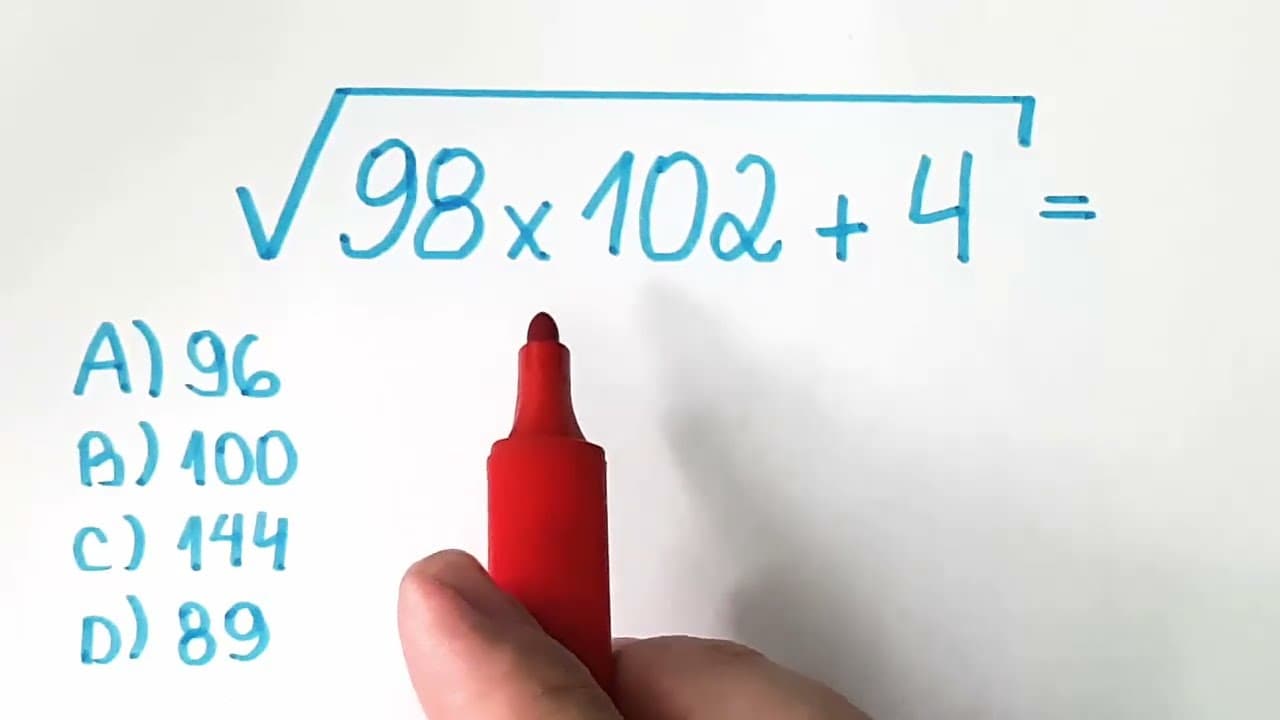 √98 x 102 + 4 =
A) 96
B) 100
C) 144
D) 89